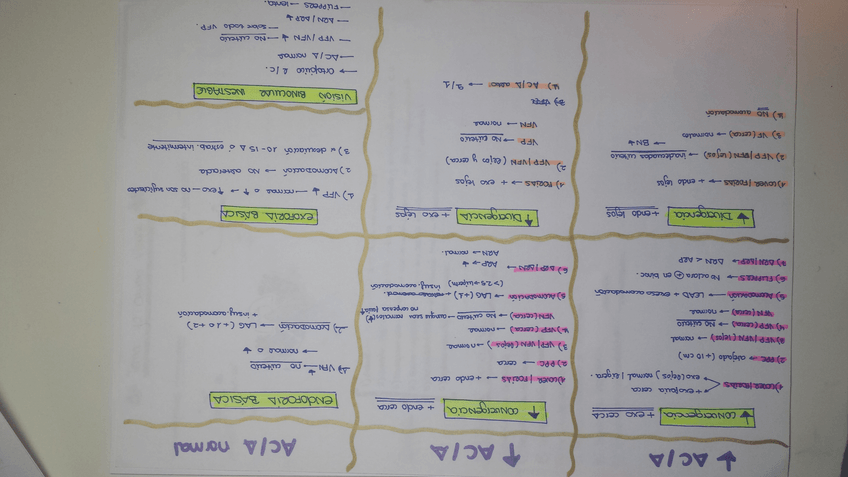 ↓ AC/A
↓ CONVERGENCIA + exo cerca
1) COVER/FORIAS → + exoforia cerca
→ exo (lejos) normal / ligera.
2) PPC → alejado (+10 cm)
3) VFP/VFN (lejos) → normal
4) VFP (cerca) → No criterio
VFN (cerca) → normal
5) Acomodación → LEAD → exceso acomodación
6) FLIPPERS → No aclara ⊕ en binoc.
7) ARN/ARP → ARN < ARP
↓ DIVERGENCIA + endo lejos
1) COVER/FORIAS → + endo lejos
2) VFP/VFN (lejos) → inadecuados criterio
→ BN ↓
3) VF (cerca) → normales
4) NO acomodación
↑ AC/A
↑ CONVERGENCIA + endo cerca
1) COVER/FORIAS → + endo cerca
2) PPC → cerca
3) VFP/VFN (lejos) → normal
4) VFP (cerca) → normal
VFN (cerca) → No criterio → aunque sean normales
5) Acomodación → LAG (+1)
insuf. acomodación
6) ARP/ARN → ARP ↓
ARN normal.
↑ DIVERGENCIA + exo lejos
1) FORIAS → + exo lejos
2) VFP/VFN (lejos y cerca)
VFP → No criterio
VFN → normal
4) AC/A altos
AC/A normal
ENDOFORIA BÁSICA
1) VFN → no criterio
→ normal o ↓
2) Acomodación → LAG (+1.0 +2)
+ insuf. acomodación
EXOFORIA BÁSICA
1) VFP ↓ → normal o ↑ → ↑ exo → no son suficientes
2) Acomodación → NO alterada
3) ↑ desviación 10-15 Δ o estrab. intermitente
VISIÓN BINOCULAR INESTABLE
→ Ortofórico l/c.
→ AC/A normal
→ VFP/VFN ↓ No criterio → sobre todo VFP
→ ARN/ARP ↓
→ FLIPPERS → lento